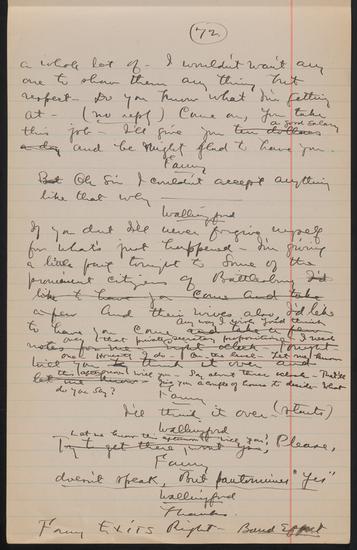 72
a whole lot of - I wouldn't want any
one to show them any thing but
respect - Do you know what I'm getting
at - (no reply) Come on, you take
a good salary
this job - I'll give you ten dollars
a day and be might glad to have you.
Fanny
But Oh Sir I couldn't accept anything
like that why
Wallingford
If you dont I'll never forgive myself
for what's just happened - I'm giving
a little party tonight to some of the
prominent citizens of Battlesburg I'd
like to have you come and take
a few And their wives also I'd like
to have you come and take a few
Any way I wish you'd think
over that private secretary proposition. I need
notes for me eight oclock tonight
one honestly I do - I on the level. Let me know
will you to think it over and
this afternoon will you - Say about three oclock - That'll
let me know - give you a couple of hours to decide. What
do you say?
Fanny
I'll think it over - (starts)
Wallingford
Let me know this afternoon will you?
Try to get there, wont you, Please,
Fanny
doesn't speak, But pantomimes "Yes"
Wallingford
Thanks.
Fanny Exits Right - Band Effect